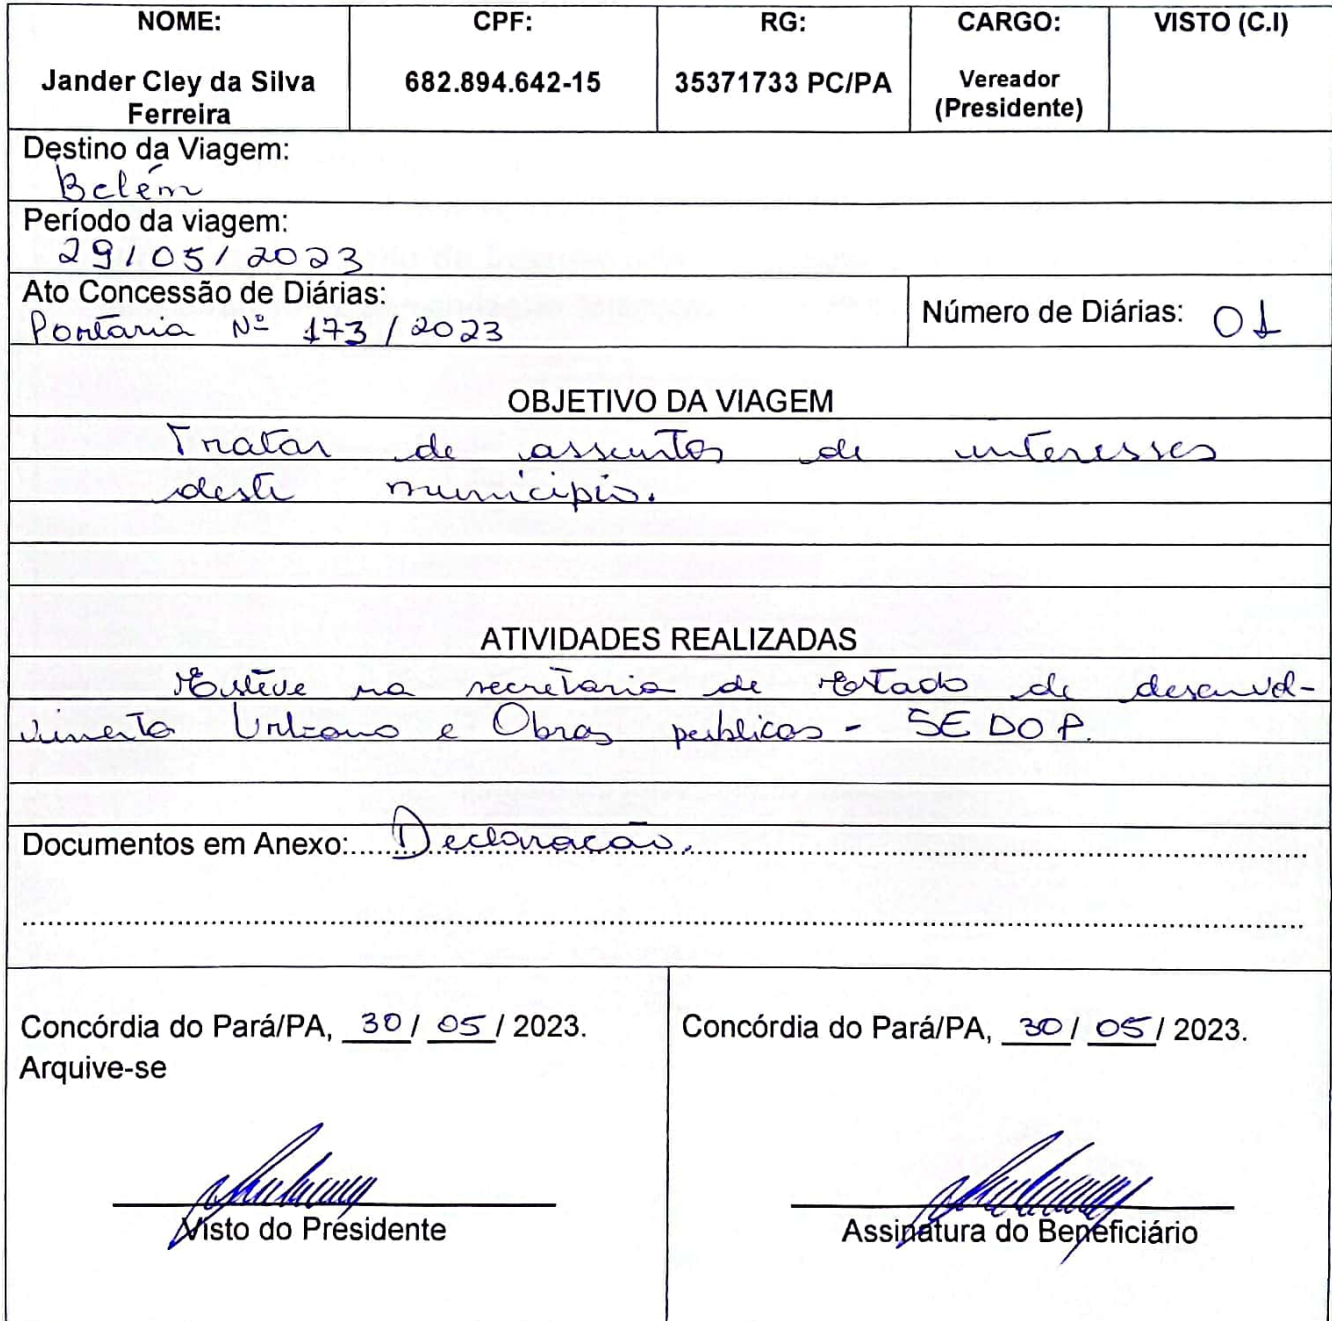 NOME: CPF: RG: CARGO: VISTO (C.I)
Jander Cley da Silva 682.894.642-15 35371733 PC/PA Vereador
Ferreira (Presidente)
Destino da Viagem:
Belém
Período da viagem:
29/05/2023
Ato Concessão de Diárias:
Portaria Nº 173/2023
Número de Diárias: 01
OBJETIVO DA VIAGEM
Tratar de assuntos de interesses
deste município.
ATIVIDADES REALIZADAS
Esteve na secretaria de Estado de desenvol-
vimento Urbano e Obras públicas - SEDOP.
Documentos em Anexo: Declaração.
Concórdia do Pará/PA, 30/ 05/ 2023.
Arquive-se
Visto do Presidente
Concórdia do Pará/PA, 30/ 05/ 2023.
Assinatura do Beneficiário